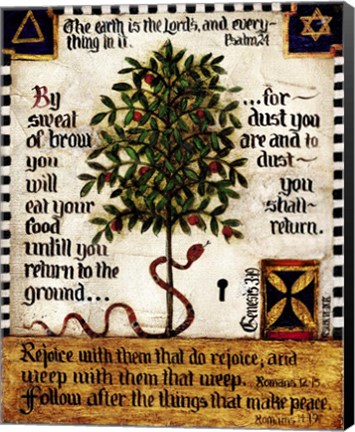 The earth is the Lord's, and every-
thing in it. Psalm,24
By
sweat
of brow
you
will
eat your
food
untill you
return to the
ground...
...for
dust you
are and to
dust~
you
shall
return.
Genesis 3:19
Rejoice with them that do rejoice, and
weep with them that weep. Romans 12:15
Follow after the things that make peace.
Romans 14:19